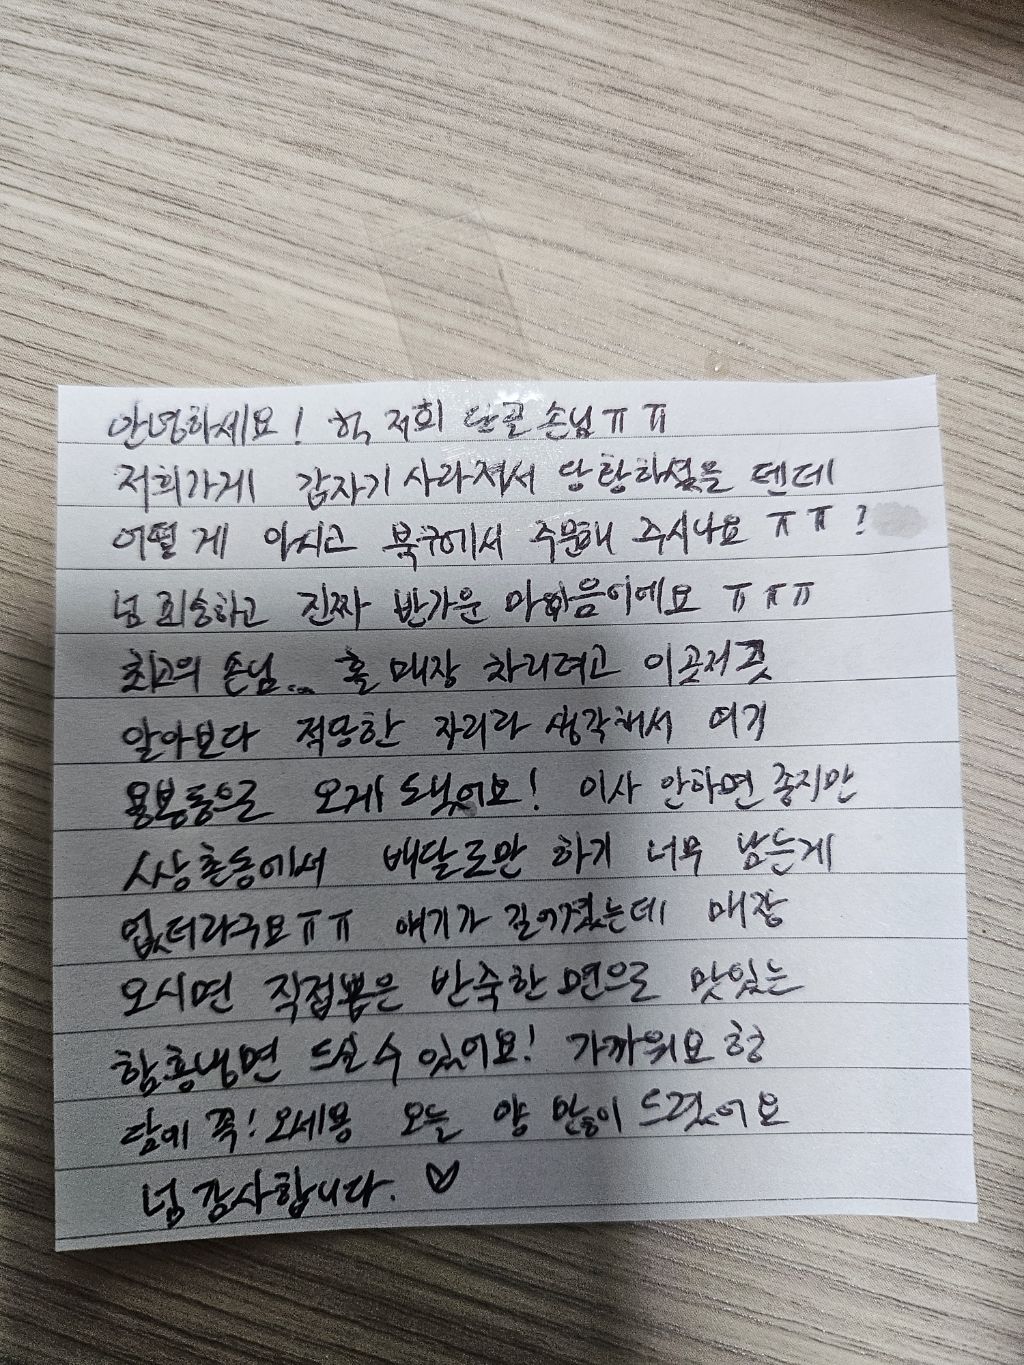 안녕하세요! 헉 저희 단골 손님ㅠㅠ
저희가게 갑자기 사라져서 당황하셨을 텐데
어떻게 아시고 북구에서 주문해 주시나요 ㅠㅠ?
넘 죄송하고 진짜 반가운 마음이에요 ㅠㅠㅠ
최고의 손님... 홀 매장 차리려고 이곳저곳
알아보다 적당한 자리라 생각해서 여기
용봉동으로 오게 되었어요! 이사 안하면 좋지만
쌍촌동에서 배달로만 하기 너무 남는게
없더라구요ㅠㅠ 얘기가 길어졌는데 매장
오시면 직접뽑은 반죽한 면으로 맛있는
함흥냉면 드실 수 있어요! 가까워요 헝
담에 꼭! 오세용 오늘 양 많이 드렸어요
넘 감사합니다. ♡